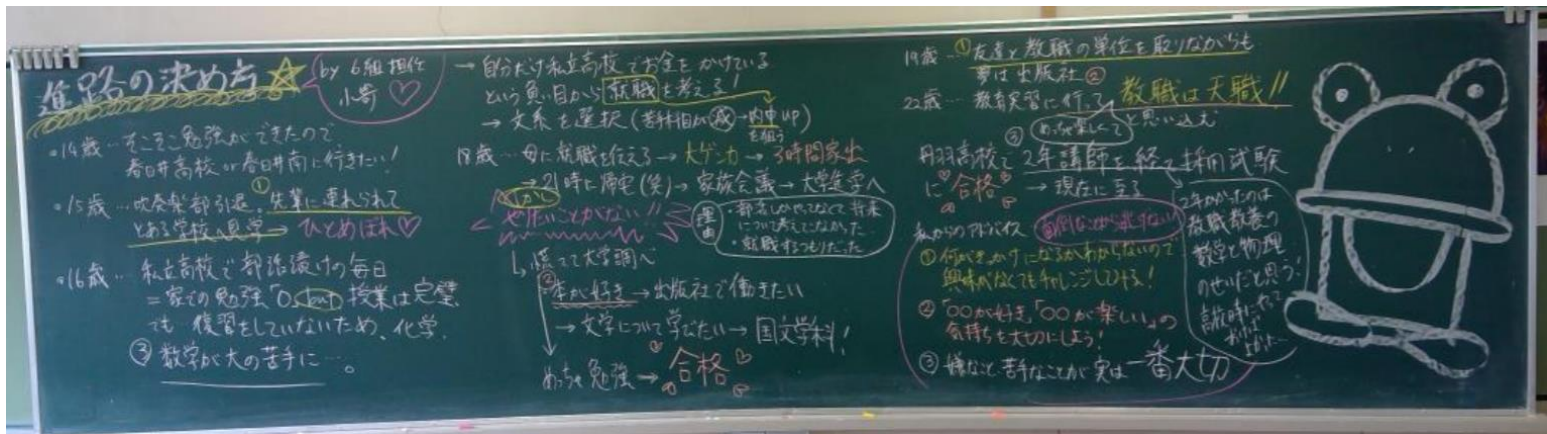 進路の決め方
by 6組担任
小寄♡
・14歳…そこそこ勉強ができたので
春日井高校or春日井南に行きたい!
・15歳…吹奏楽部引退、①先輩に連れられて
とある学校へ見学→ひとめぼれ♡
・16歳…私立高校で部活漬けの毎日
=家での勉強「0」but授業は完璧
でも復習をしていないため、化学、
③数学が大の苦手に…。
→自分だけ私立高校でお金をかけている
という負い目から就職を考える!
→文系を選択(苦手科目が減→内申up)
を狙う
18歳…母に就職を伝える→大ゲンカ→3時間家出
→21時に帰宅(笑)→家族会議→大学進学へ
しかし
やりたいことがない!!
理由
・部活しかやってなくて将来
について考えてなかった
・就職するつもりだった
↳慌てて大学調べ
②本が好き→出版社で働きたい
→文学について学びたい→国文学科!
めっちゃ勉強→合格
19歳…①友達と教職の単位を取りながらも
夢は出版社②
22歳…教育実習に行って教職は天職!!
③めっちゃ楽しくてと思い込む
丹羽高校で2年講師を経て採用試験
に合格→現在に至る
2年かかったのは
教職教養の
数学と物理
のせいだと思う!
高校時にやって
おけば
よかった…
私からのアドバイス 面倒なことから逃げない
①何がきっかけになるかわからないので
興味がなくてもチャレンジしてみる!
②「○○が好き」「○○が楽しい」の
気持ちを大切にしよう!
③嫌なこと、苦手なことが実は一番大切